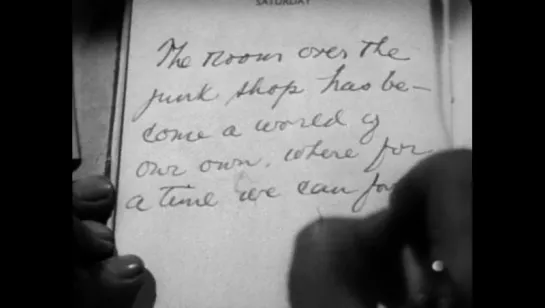 SATURDAY
The room over the
junk shop has be-
come a world of
our own. where for
a time we can for